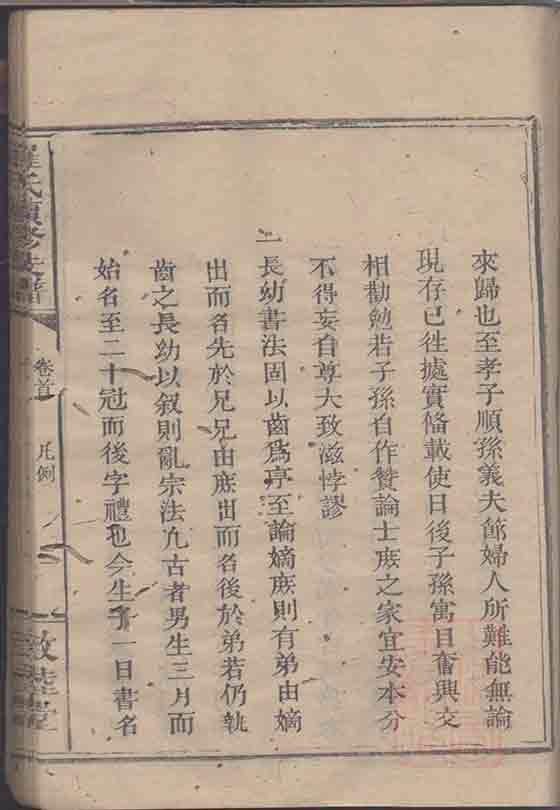 來歸也至孝子順孫義夫節婦人所難能無論
現存已徃據實俻載使日後子孫寓目奮興交
相勸勉若子孫自作贊論士庻之家宜安本分
不得妄自尊大致滋悖謬
一長幼書法固以齒爲序至論嫡庻則有弟由嫡
出而名先於兄兄由庻出而名後於弟若仍執
齒之長幼以叙則亂宗法凢古者男生三月而
始名至二十冠而後字禮也今生子一目書名
氏續修族譜
卷首
凡例
敦
堂